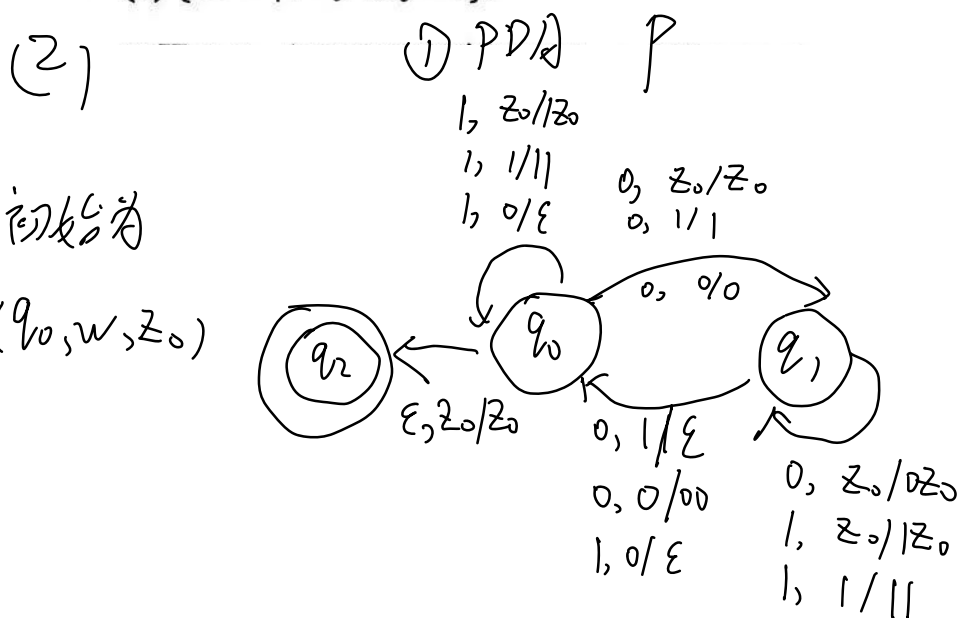 (2)
① PDA P
1, Z₀/1Z₀
1, 1/11
1, 0/ε
0, Z₀/Z₀
0, 1/1
0, 0/0
初始为
(q₀, w, Z₀)
q₂
q₀
q₁
ε, Z₀/Z₀
0, 1/ε
0, 0/00
1, 0/ε
0, Z₀/0Z₀
1, Z₀/1Z₀
1, 1/11